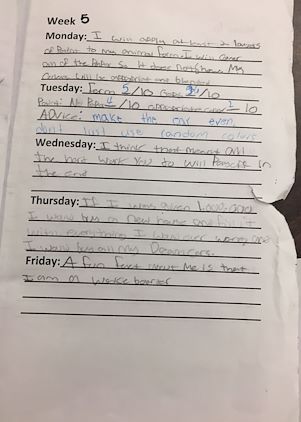 Week 5
Monday: I will apply at least 2 layers
of Paint to my animal form. I will cover
all of the Paper so it does not show. My
Colors will be appropriate and blended
Tuesday: Form 5/10 Gaps /10
Paint: No Paper 4/10 appropriate color 1/10
ADvice: make the ear even,
dont Just use random colors
Wednesday: I think that means all
the hard work you do will in
the end
Thursday: If I was given
I would buy a new house and fill it
with everything I would ever want and
I would buy all my
Friday: A fun fact about Me is that
I am a